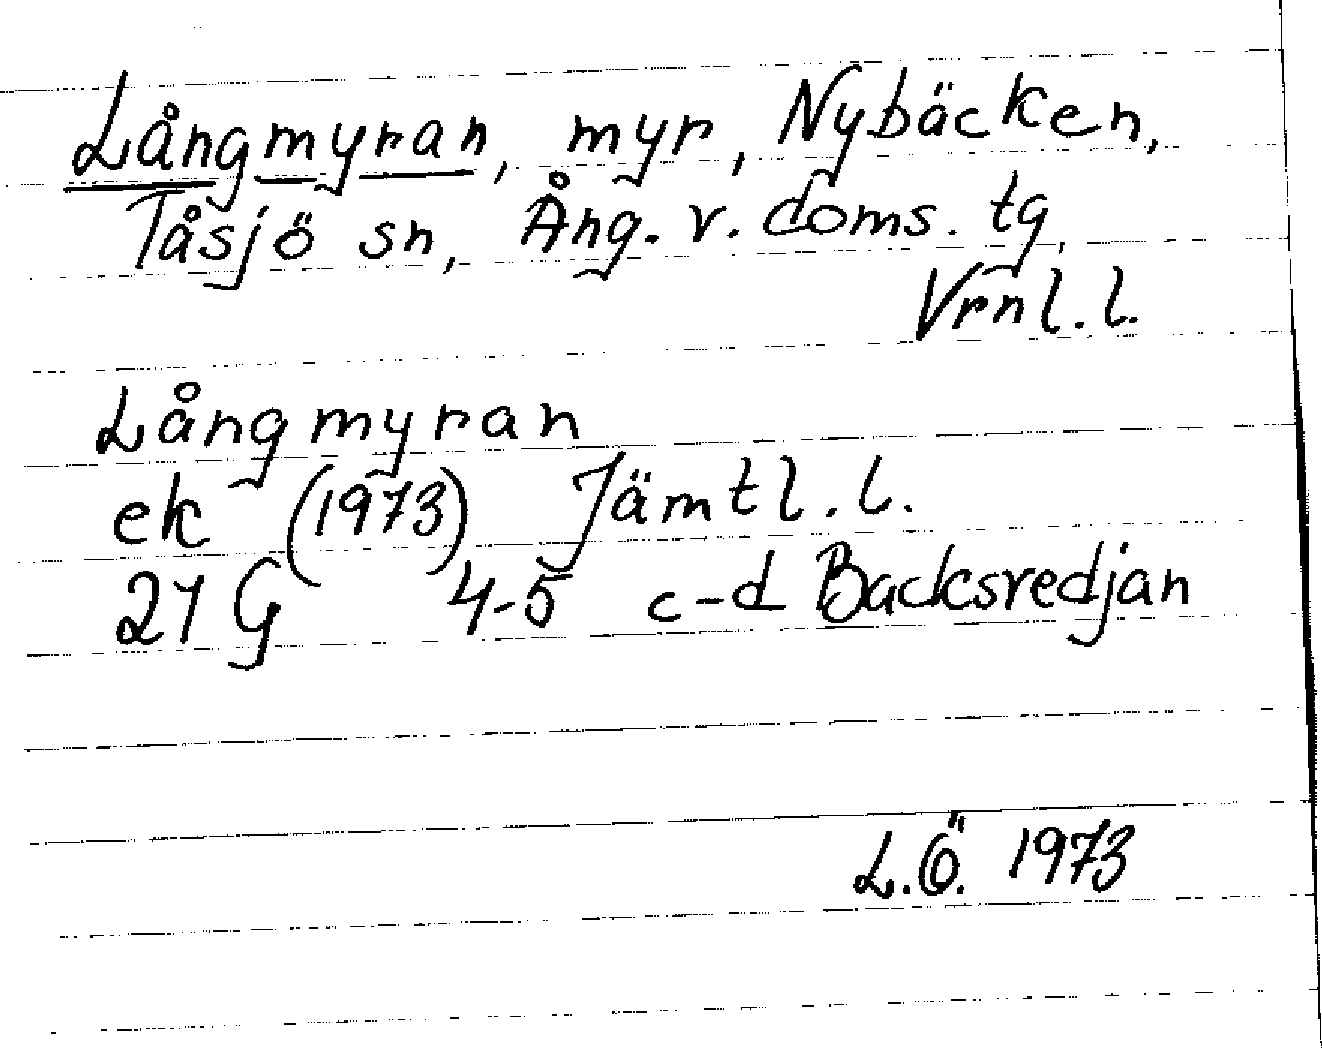 Långmyran, myr, Nybäcken,
Tåsjö sn, Ång. v. doms. tg,
Vrnl.l.
Långmyran
ek (1973) Jämtl.l.
21 G 4-5 c-d Backsredjan
L.Ö. 1973